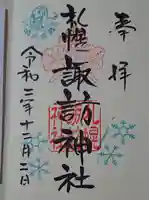 奉拝
札幌諏訪神社
令和三年十二月二日